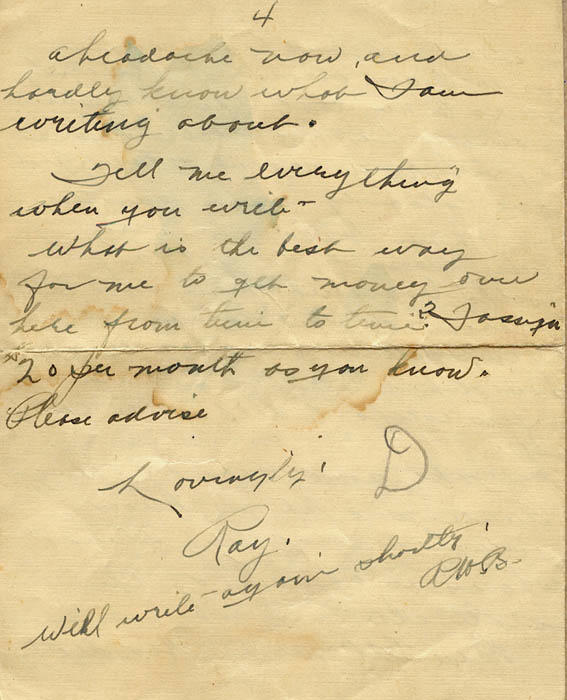 4
a headache now, and
hardly know what I am
writing about.
Tell me everything
when you write
What is the best way
for me to get money over
here from time to time? I assign
$20 per month as you know.
Please advise
Lovingly, D
Ray.
Will write again shortly!
R.W.B.